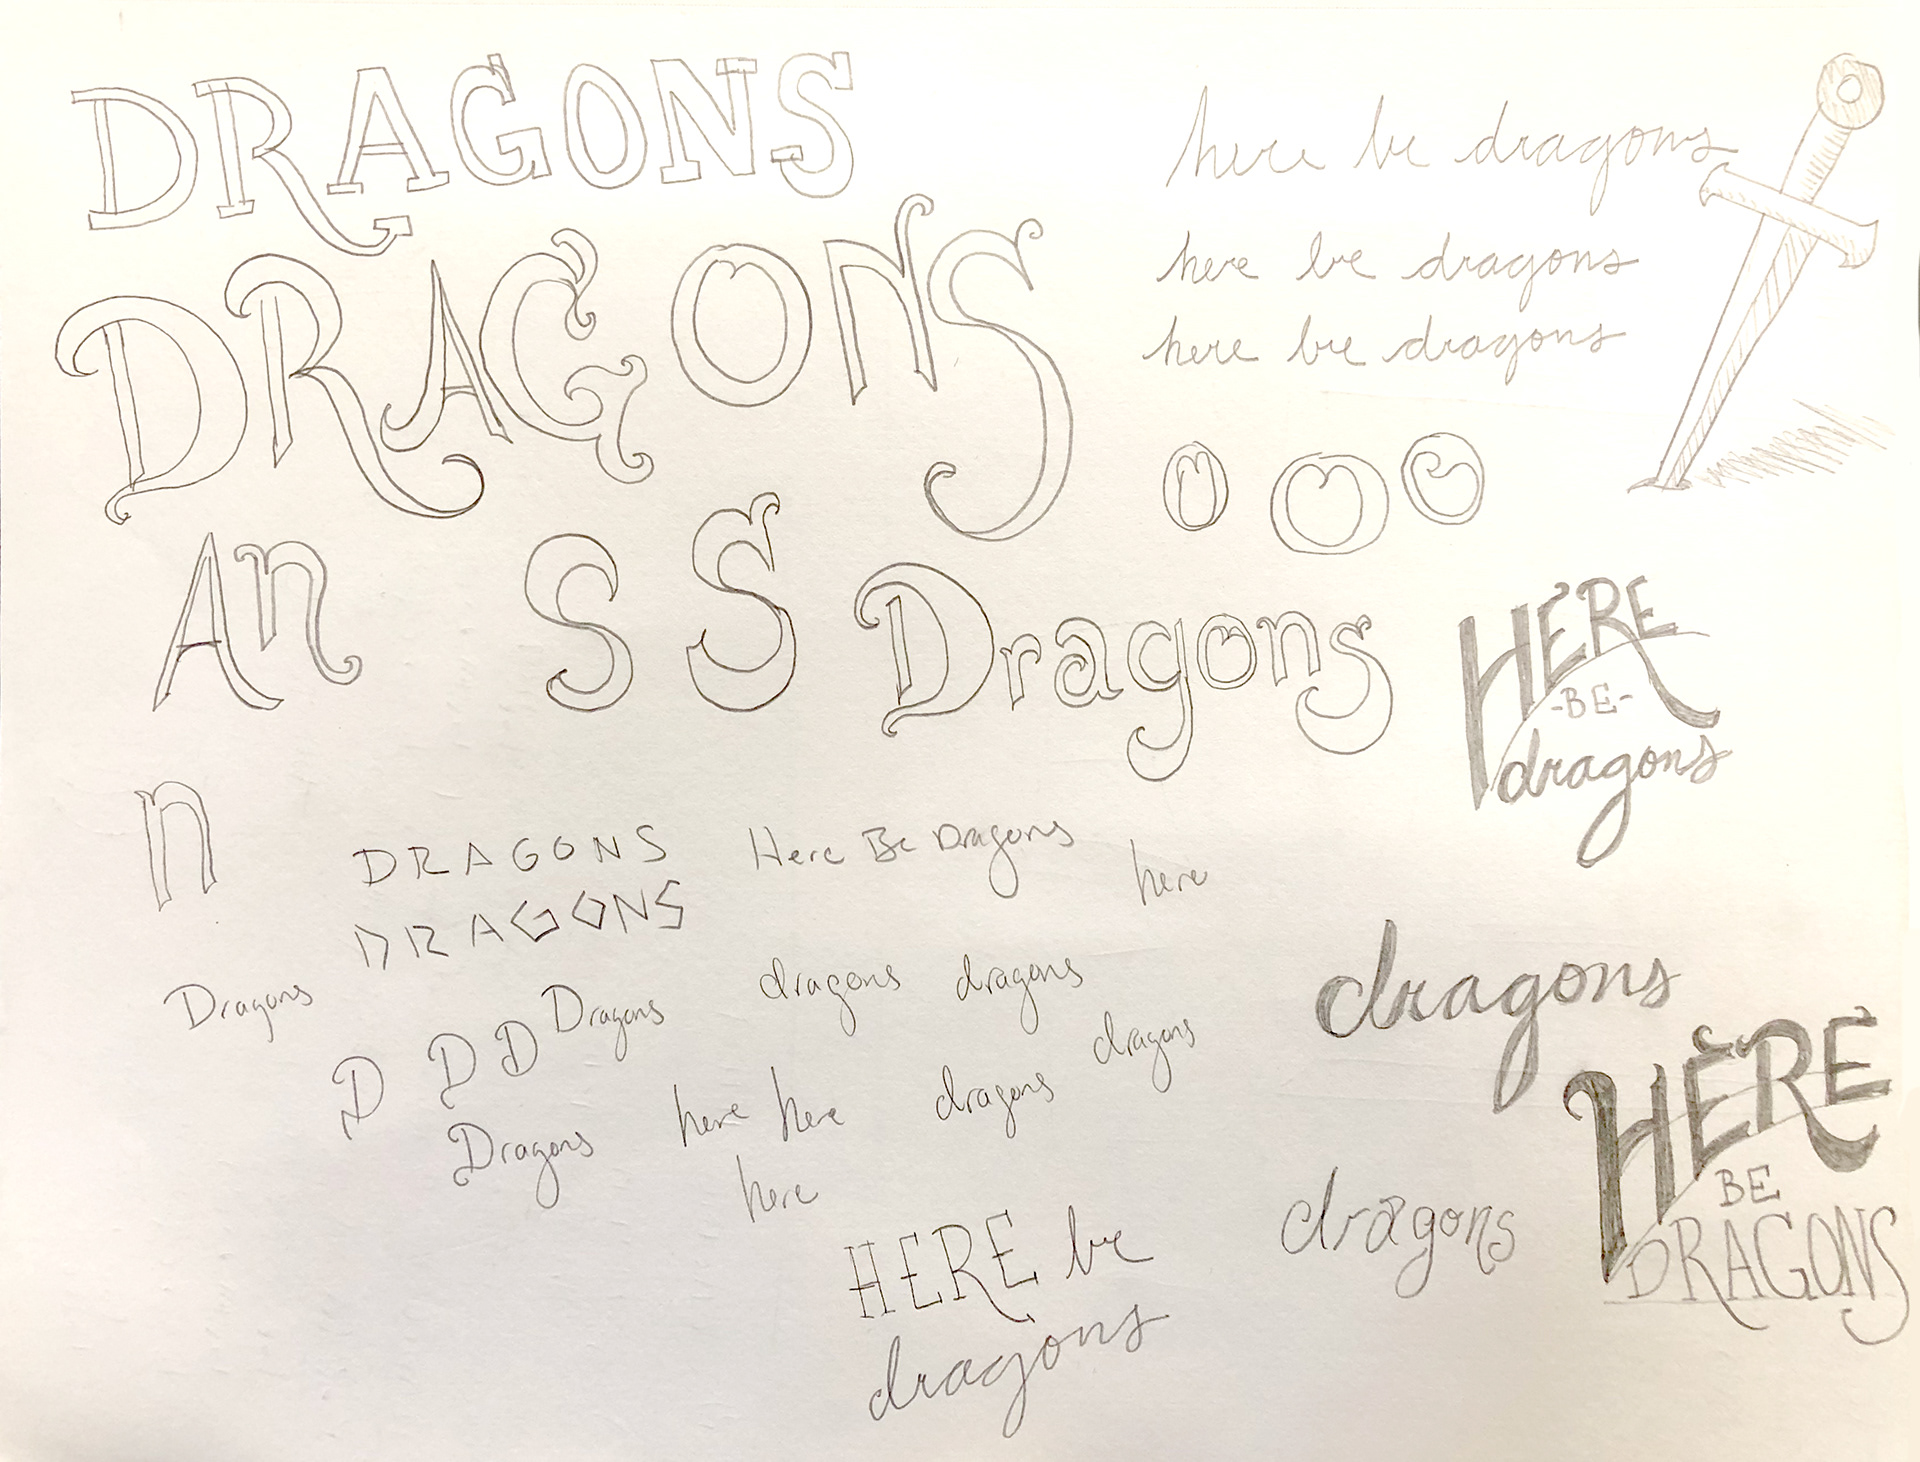 DRAGONS
here be dragons
DRAGONS
here be dragons
here be dragons
O O O
An S S Dragons
HERE
-BE-
dragons
n
DRAGONS
Here Be Dragons
here
DRAGONS
Dragons
D D D
Dragons
dragons
dragons
dragons
Dragons
here here
dragons
here
dragons
HERE
BE
DRAGONS
dragons
HERE be
dragons